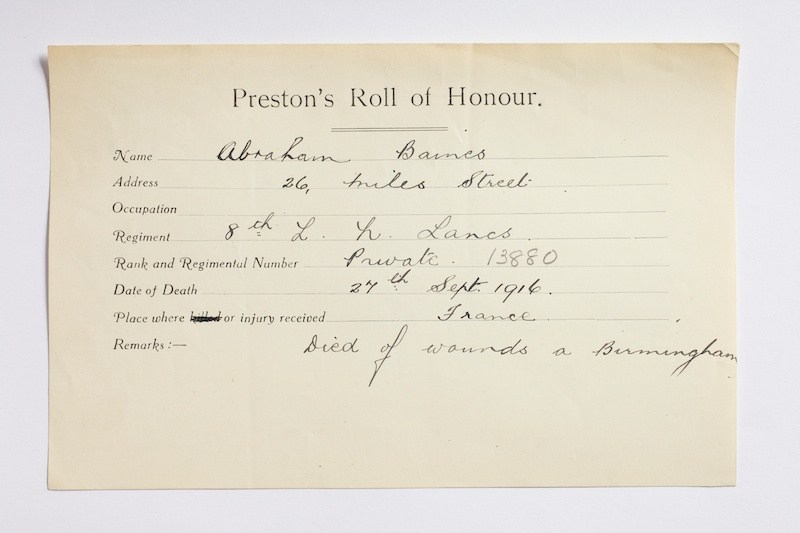 Preston's Roll of Honour.
Name Abraham Baines
Address 26, Miles Street
Occupation
Regiment 8th L. N. Lancs.
Rank and Regimental Number Private. 13880
Date of Death 27th Sept. 1916.
Place where killed or injury received France
Remarks:— Died of wounds a Birmingham